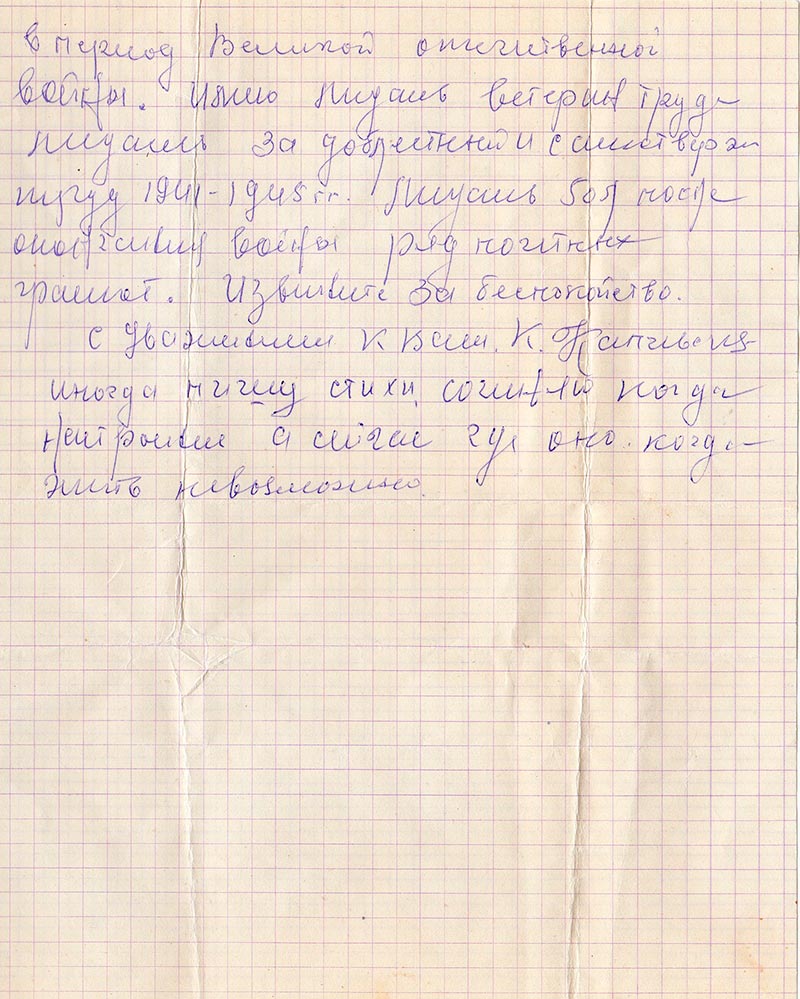 в период Великой отечественной
войны. Имею медаль ветеран труда
медаль за доблестный и самотверж
труд 1941-1945 гг. Медаль 50л после
окончания войны ряд почетных
грамот. Извините за беспокойство.
С уважением к Вам. К.
иногда пишу стихи, сочиняю когда
настроение а сейчас где оно. когда
жить невозможно.